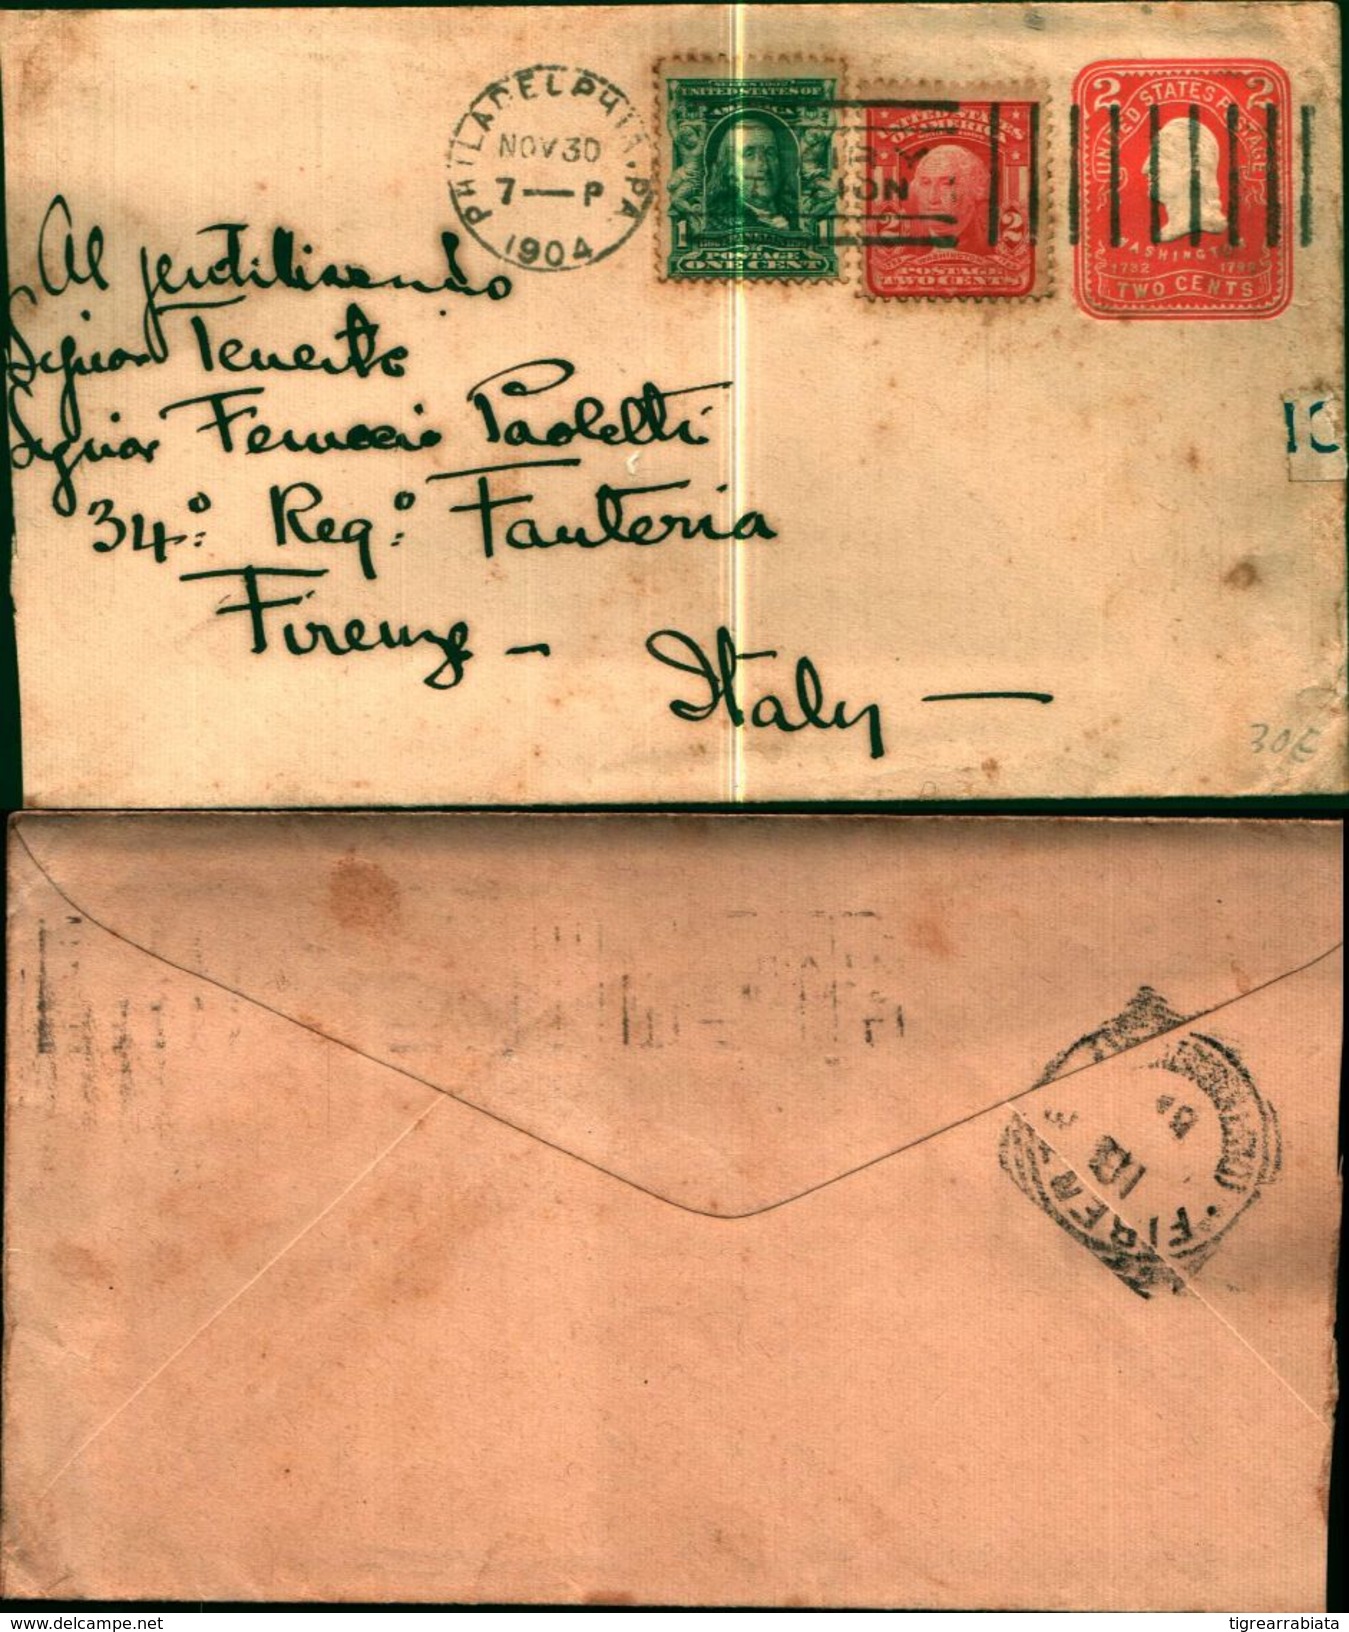 PHILADELPHIA, PA.
NOV 30
7 — P
1904
UNITED STATES OF
AMERICA
1 1
POSTAGE
ONE CENT
UNITED STATES
OF AMERICA
2 2
WASHINGTON
POSTAGE
TWO CENTS
2 2
UNITED STATES POSTAGE
WASHINGTON
1732 1799
TWO CENTS
Al gentilissimo
Signor Tenente
Signor Ferruccio Paoletti
34º Regº Fanteria
Firenze —
Italy —
30E
FIRENZE
tigrearrabiata